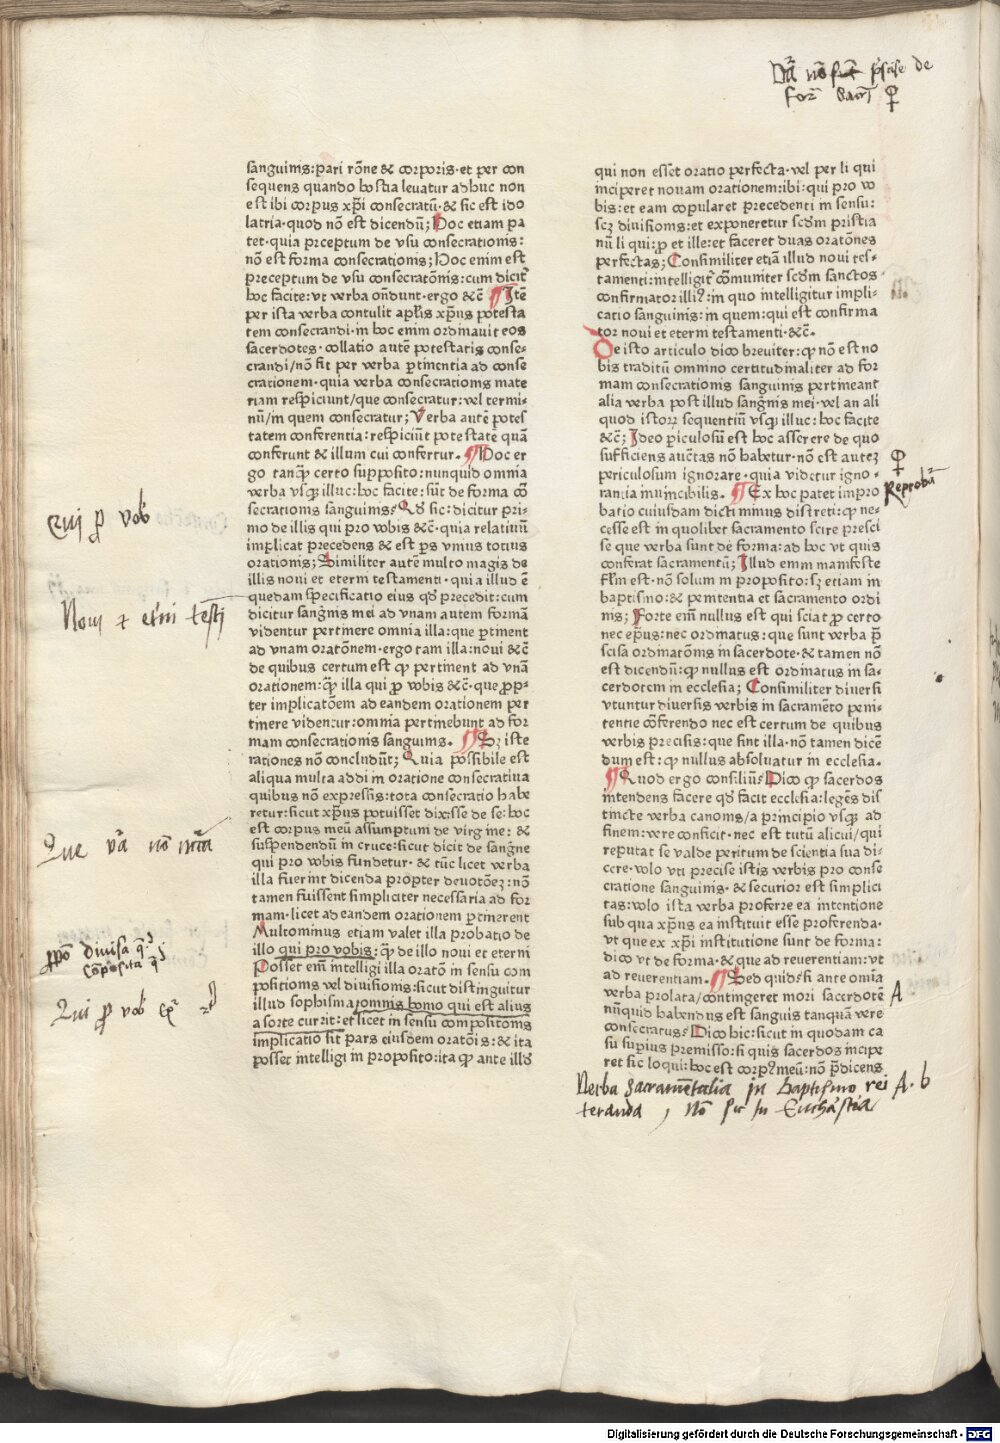 sanguinis:pari rōne & corporis·et per con
sequens quando hostia leuatur adhuc non
est ibi corpus xp̄i consecratū·& sic est ido
latria·quod nō est dicendū; Hoc etiam pa
tet·quia preceptum de vsu consecrationis:
nō est forma consecrationis; Hoc enim est
preceptum de vsu consecratōnis:cum dicit᷑
hoc facite:vt verba on̄dunt·ergo &c̄ ¶ Itē
per ista verba contulit ap̄lis xp̄us potesta
tem consecrandi·in hoc enim ordinauit eos
sacerdotes·collatio autē potestatis conse⸗
crandi/nō fit per verba ꝑtinentia ad conse
crationem·quia verba consecrationis mate
riam respiciunt/que consecratur:vel termi⸗
nū/in quem consecratur; Verba autē potes
tatem conferentia:respiciūt potestatē quā
conferunt & illum cui confertur. ¶ Hoc er
go tanq̄ȝ certo supposito:nunquid omnia
verba vsqȝ illuc:hoc facite:sūt de forma cō
secrationis sanguinis? Qḋ sic:dicitur pri⸗
mo de illis qui pro vobis &c̄·quia relatiuū
implicat precedens & est ps̄ vnius totius
orationis; Similiter autē multo magis de
illis noui et eterni testamenti·quia illud ē
quedam specificatio eius qḋ precedit:cum
dicitur sangīnis mei ad vnam autem formā
videntur pertinere omnia illa:que ꝑtinent
ad vnam oratōnem·ergo tam illa:noui &c̄
de quibus certum est ꝙ pertinent ad vnā
orationem:q̄ȝ illa qui ꝓ vobis &c̄·que ꝓp⸗
ter implicatōem ad eandem orationem per
tinere videntur:omnia pertinebunt ad for
mam consecrationis sanguinis. ¶ Sȝ iste
rationes nō concludūt; Quia possibile est
aliqua multa addi in oratione consecratiua
quibus nō expressis:tota consecratio habe
retur:sicut xp̄us potuisset dixisse de se:hoc
est corpus meū assumptum de virgine: &
suspendendū in cruce:sicut dicit de sangīne
qui pro vobis fundetur· & tūc licet verba
illa fuerint dicenda propter deuotōeȝ:nō
tamen fuissent simpliciter necessaria ad for
mam·licet ad eandem orationem ꝑtinerent
Multominus etiam valet illa probatio de
illo qui pro vobis:q̄ȝ de illo noui et eterni
Posset em̄ intelligi illa oratō in sensu com
positionis vel diuisionis:sicut distinguitur
illud sophisma:omnis homo qui est alius
a sorte currit:et licet in sensu compositonis
implicatio sit pars eiusdem oratōis:& ita
posset intelligi in proposito:ita ꝙ ante illḋ
qui non esset oratio perfecta·vel per li qui
inciperet nouam orationem:ibi:qui pro vo
bis:et eam copularet precedenti in sensu:
scȝ diuisionis:et exponeretur scḋm pristia
nū li qui:ꝓ et ille:et faceret duas oratōnes
perfectas; Consimiliter etiā illud noui tes⸗
tamenti:intelligit᷑ cōmuniter scḋm sanctos
confirmator illiꝰ:in quo intelligitur impli⸗
catio sanguinis:in quem:qui est confirma
tor noui et eterni testamenti·&c̄.
De isto articulo dico breuiter:ꝙ nō est no
bis traditū omnino certitudinaliter ad for
mam consecrationis sanguinis pertineant
alia verba post illud sangīnis mei·vel an ali
quod istoꝝ sequentiū vsqȝ illuc:hoc facite
&c̄; Ideo periculosū est hoc asserere de quo
sufficiens auc̄tas nō habetur·nō est auteȝ
periculosum ignorare·quia videtur igno⸗
rantia inuincibilis. ¶ Ex hoc patet impro
batio cuiusdam dicti minus discreti:ꝙ ne⸗
cesse est in quolibet sacramento scire presci
se que verba sunt de forma:ad hoc vt quis
conferat sacramentū; Illud enim manifeste
flm̄ est·nō solum in proposito:sȝ etiam in
baptismo:& penitentia et sacramento ordi
nis; Forte em̄ nullus est qui sciat ꝓ certo
nec ep̄us:nec ordinatus:que sunt verba p̄
scisa ordinatōnis in sacerdote·& tamen nō
est dicendū:ꝙ nullus est ordinatus in sa⸗
cerdotem in ecclesia; Consimiliter diuersi
vtuntur diuersis verbis in sacramēto peni⸗
tentie cōferendo nec est certum de quibus
verbis precisis:que sint illa·nō tamen dicē
dum est:ꝙ nullus absoluatur in ecclesia.
¶ Quod ergo consiliū? Dico ꝙ sacerdos
intendens facere qḋ facit ecclesia:legēs dis
tincte verba canonis/a principio vsqȝ ad
finem:vere conficit·nec est tutū alicui/qui
reputat se valde peritum de scientia sua di⸗
cere·volo vti precise istis verbis pro conse
cratione sanguinis·& securior est simplici
tas:volo ista verba proferre ea intentione
sub qua xp̄us ea instituit esse proferenda·
vt que ex xp̄i institutione sunt de forma:
dico vt de forma·& que ad reuerentiam:vt
ad reuerentiam. ¶ Sed quid?si ante omīa
verba prolata/contingeret mori sacerdotē
nūquid habendus est sanguis tanquā vere
consecratus? Dico hic:sicut in quodam ca
su supius premisso:si quis sacerdos incipe
ret sic loqui:hoc est corpꝰ meū:nō p̄dicens
Qui ꝓ vob̄
Noui et et̄ni testi
Que v̄a nō nc̄īa
ꝓpō diuisa
cōposita
Qui ꝓ vob̄
V̄a nō sūt p̄cise de
for̄
Reprobat᷑
A
Verba sacramētalia in Baptismo rei
teranda, nō sic in Eucharistia
A. b
Digitalisierung gefördert durch die Deutsche Forschungsgemeinschaft - DFG